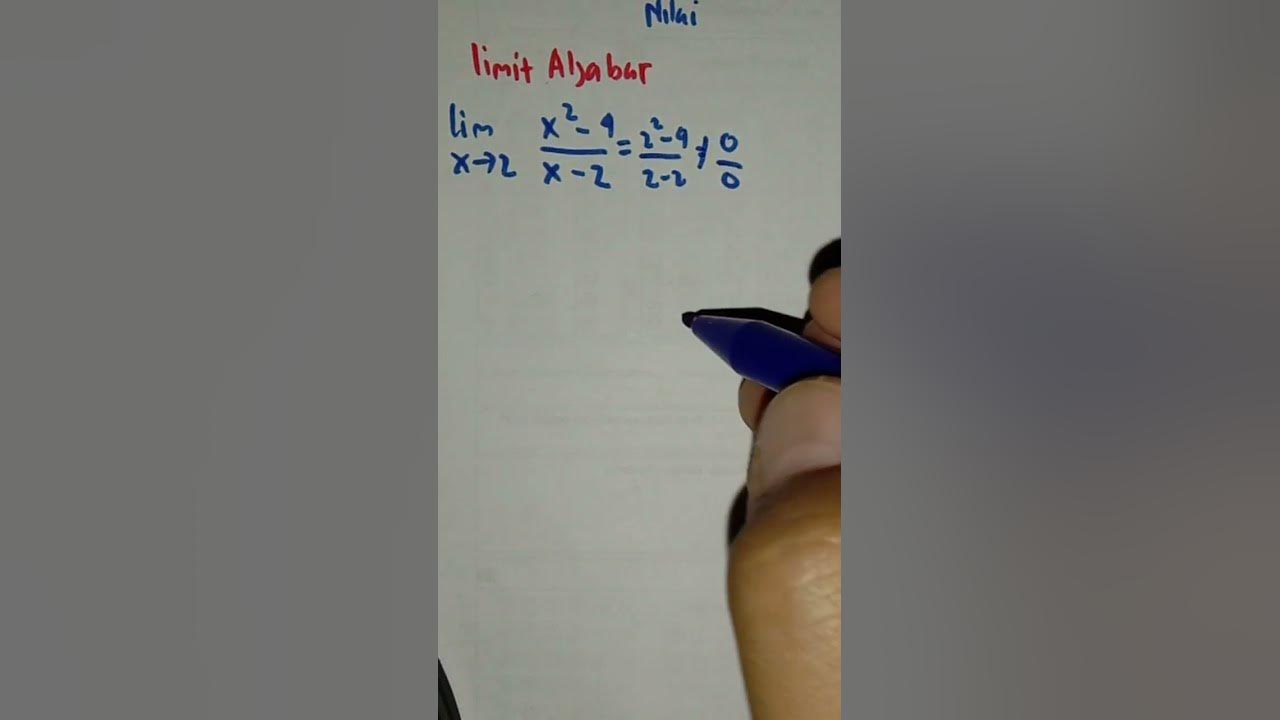 Nilai
limit Aljabar
lim x² - 4 = 2² - 4 ≠ 0
x→2 x - 2 2 - 2 0